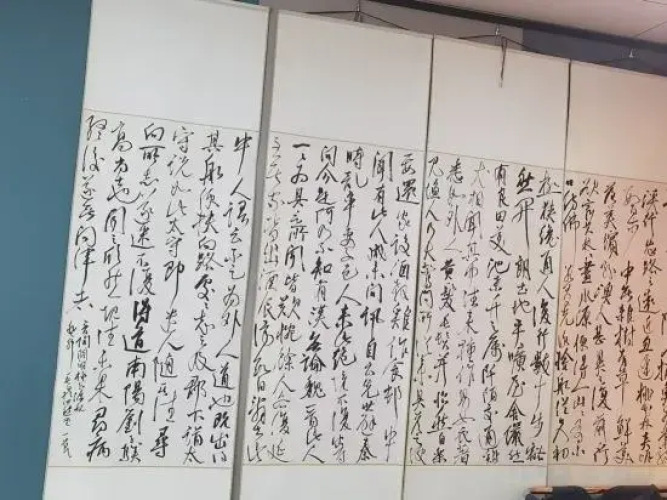 溪行忘路之遠近忽逢桃花林夾岸
數百步中無雜樹芳草鮮美
落英繽紛漁人甚異之復前行
欲窮其林林盡水源便得一山山有小
口仿佛若有光便捨船從口初
極狹纔通人復行數十步豁
然開朗土地平曠屋舍儼然
有良田美池桑竹之屬阡陌交通雞
犬相聞其中往來種作男女衣著
悉如外人黃髮垂髫並怡然自樂
見漁人乃大驚問所從來具答之便
要還家設酒殺雞作食村中
聞有此人咸來問訊自云先世避秦
時亂率妻子邑人來此絕境不復出
問今是何世乃不知有漢無論魏晉此人
一一為具言所聞皆歎惋餘人各復延
至其家皆出酒食停數日辭去此
中人語云不足為外人道也既出得
其船便扶向路處處志之及郡下詣太
守說如此太守即遣人隨其往尋
向所志遂迷不復得道南陽劉子驥
高尚士也聞之欣然規往未果尋病
終後遂無問津者